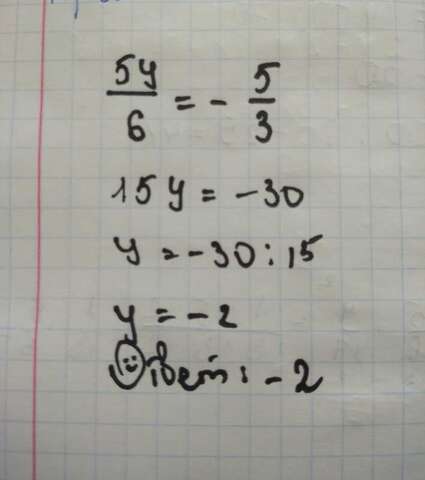 5y/6 = - 5/3
15y = -30
y = -30 : 15
y = -2
Ответ: -2